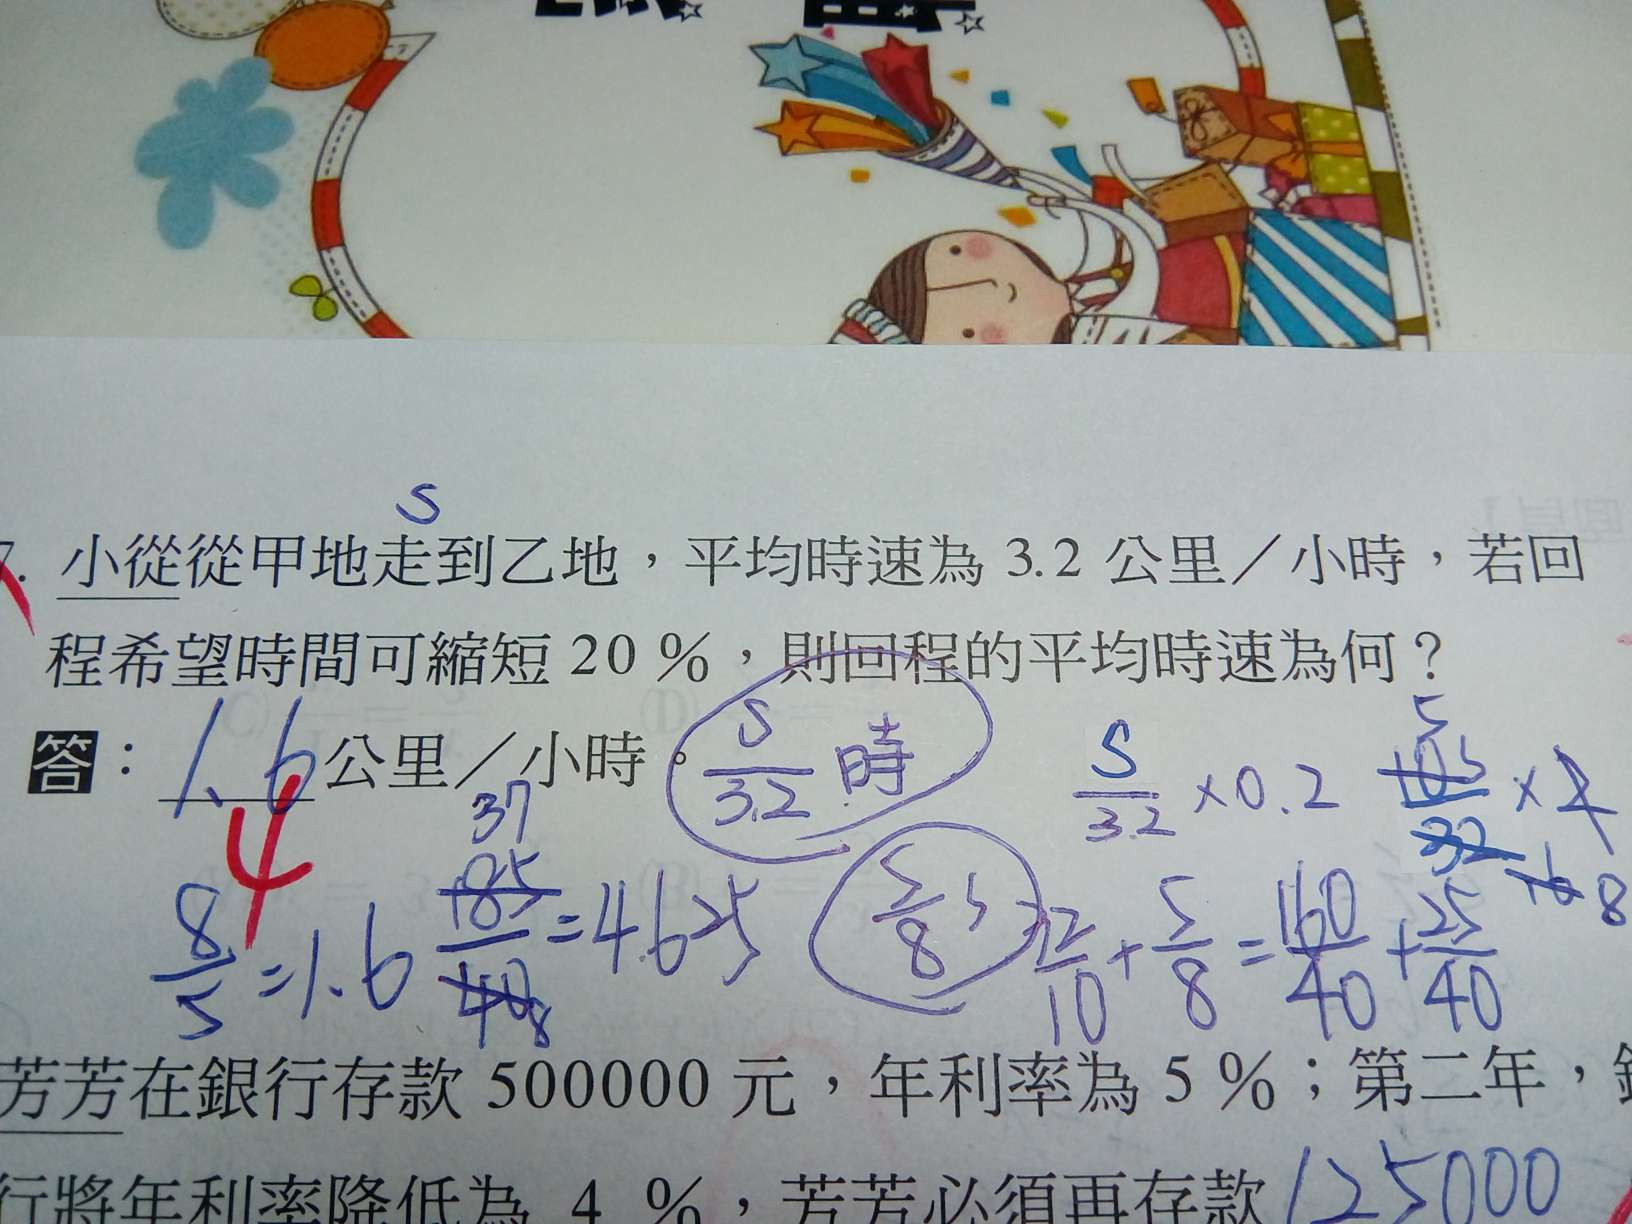 S
7. 小從從甲地走到乙地，平均時速為 3.2 公里／小時，若回
程希望時間可縮短 20 %，則回程的平均時速為何？
答：1.6 公里／小時。
4
S/3.2 時
S/3.2 ×0.2
5
32
16 8
8/5 =1.6
37
185/40 8 =4.625
5/8 S
32/10 + 5/8 = 160/40 + 25/40
芳芳在銀行存款 500000 元，年利率為 5 %；第二年，
行將年利率降低為 4 %，芳芳必須再存款 125000